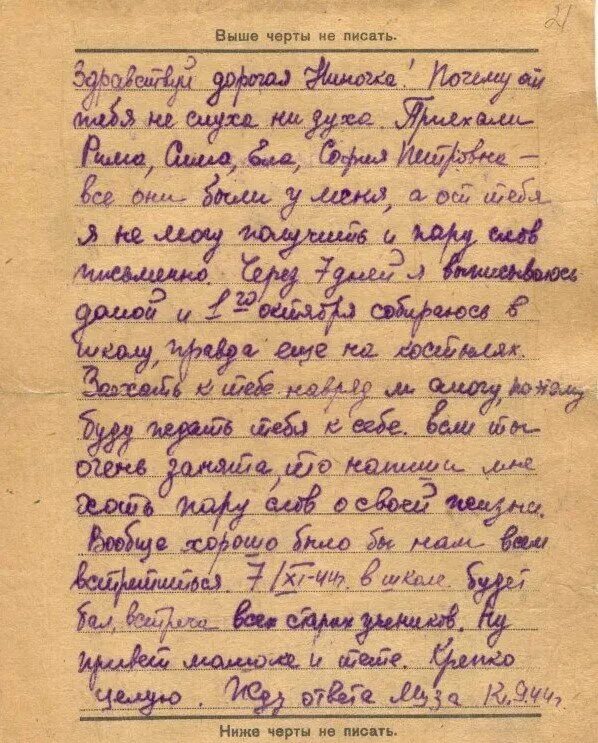 21
Выше черты не писать.
Здравствуй дорогая Ниночка! Почему от
тебя не слуха ни духа. Приехали
Рима, Сима, Ела, София Петровна —
все они были у меня, а от тебя
я не могу получить и пару слов
письменно. Через 7 дней я выписываюсь
домой и 1го октября собираюсь в
школу, правда еще на костылях.
Заехать к тебе навряд ли смогу, поэтому
буду ждать тебя к себе. Если ты
очень занята, то напиши мне
хоть пару слов о своей жизни.
Вообще хорошо было бы нам всем
встретиться. 7/XI-44г. в школе будет
бал, встреча всех старых учеников. Ну
привет мамоке и тете. Крепко
целую. Жду ответа Муза 12.9.44г.
Ниже черты не писать.